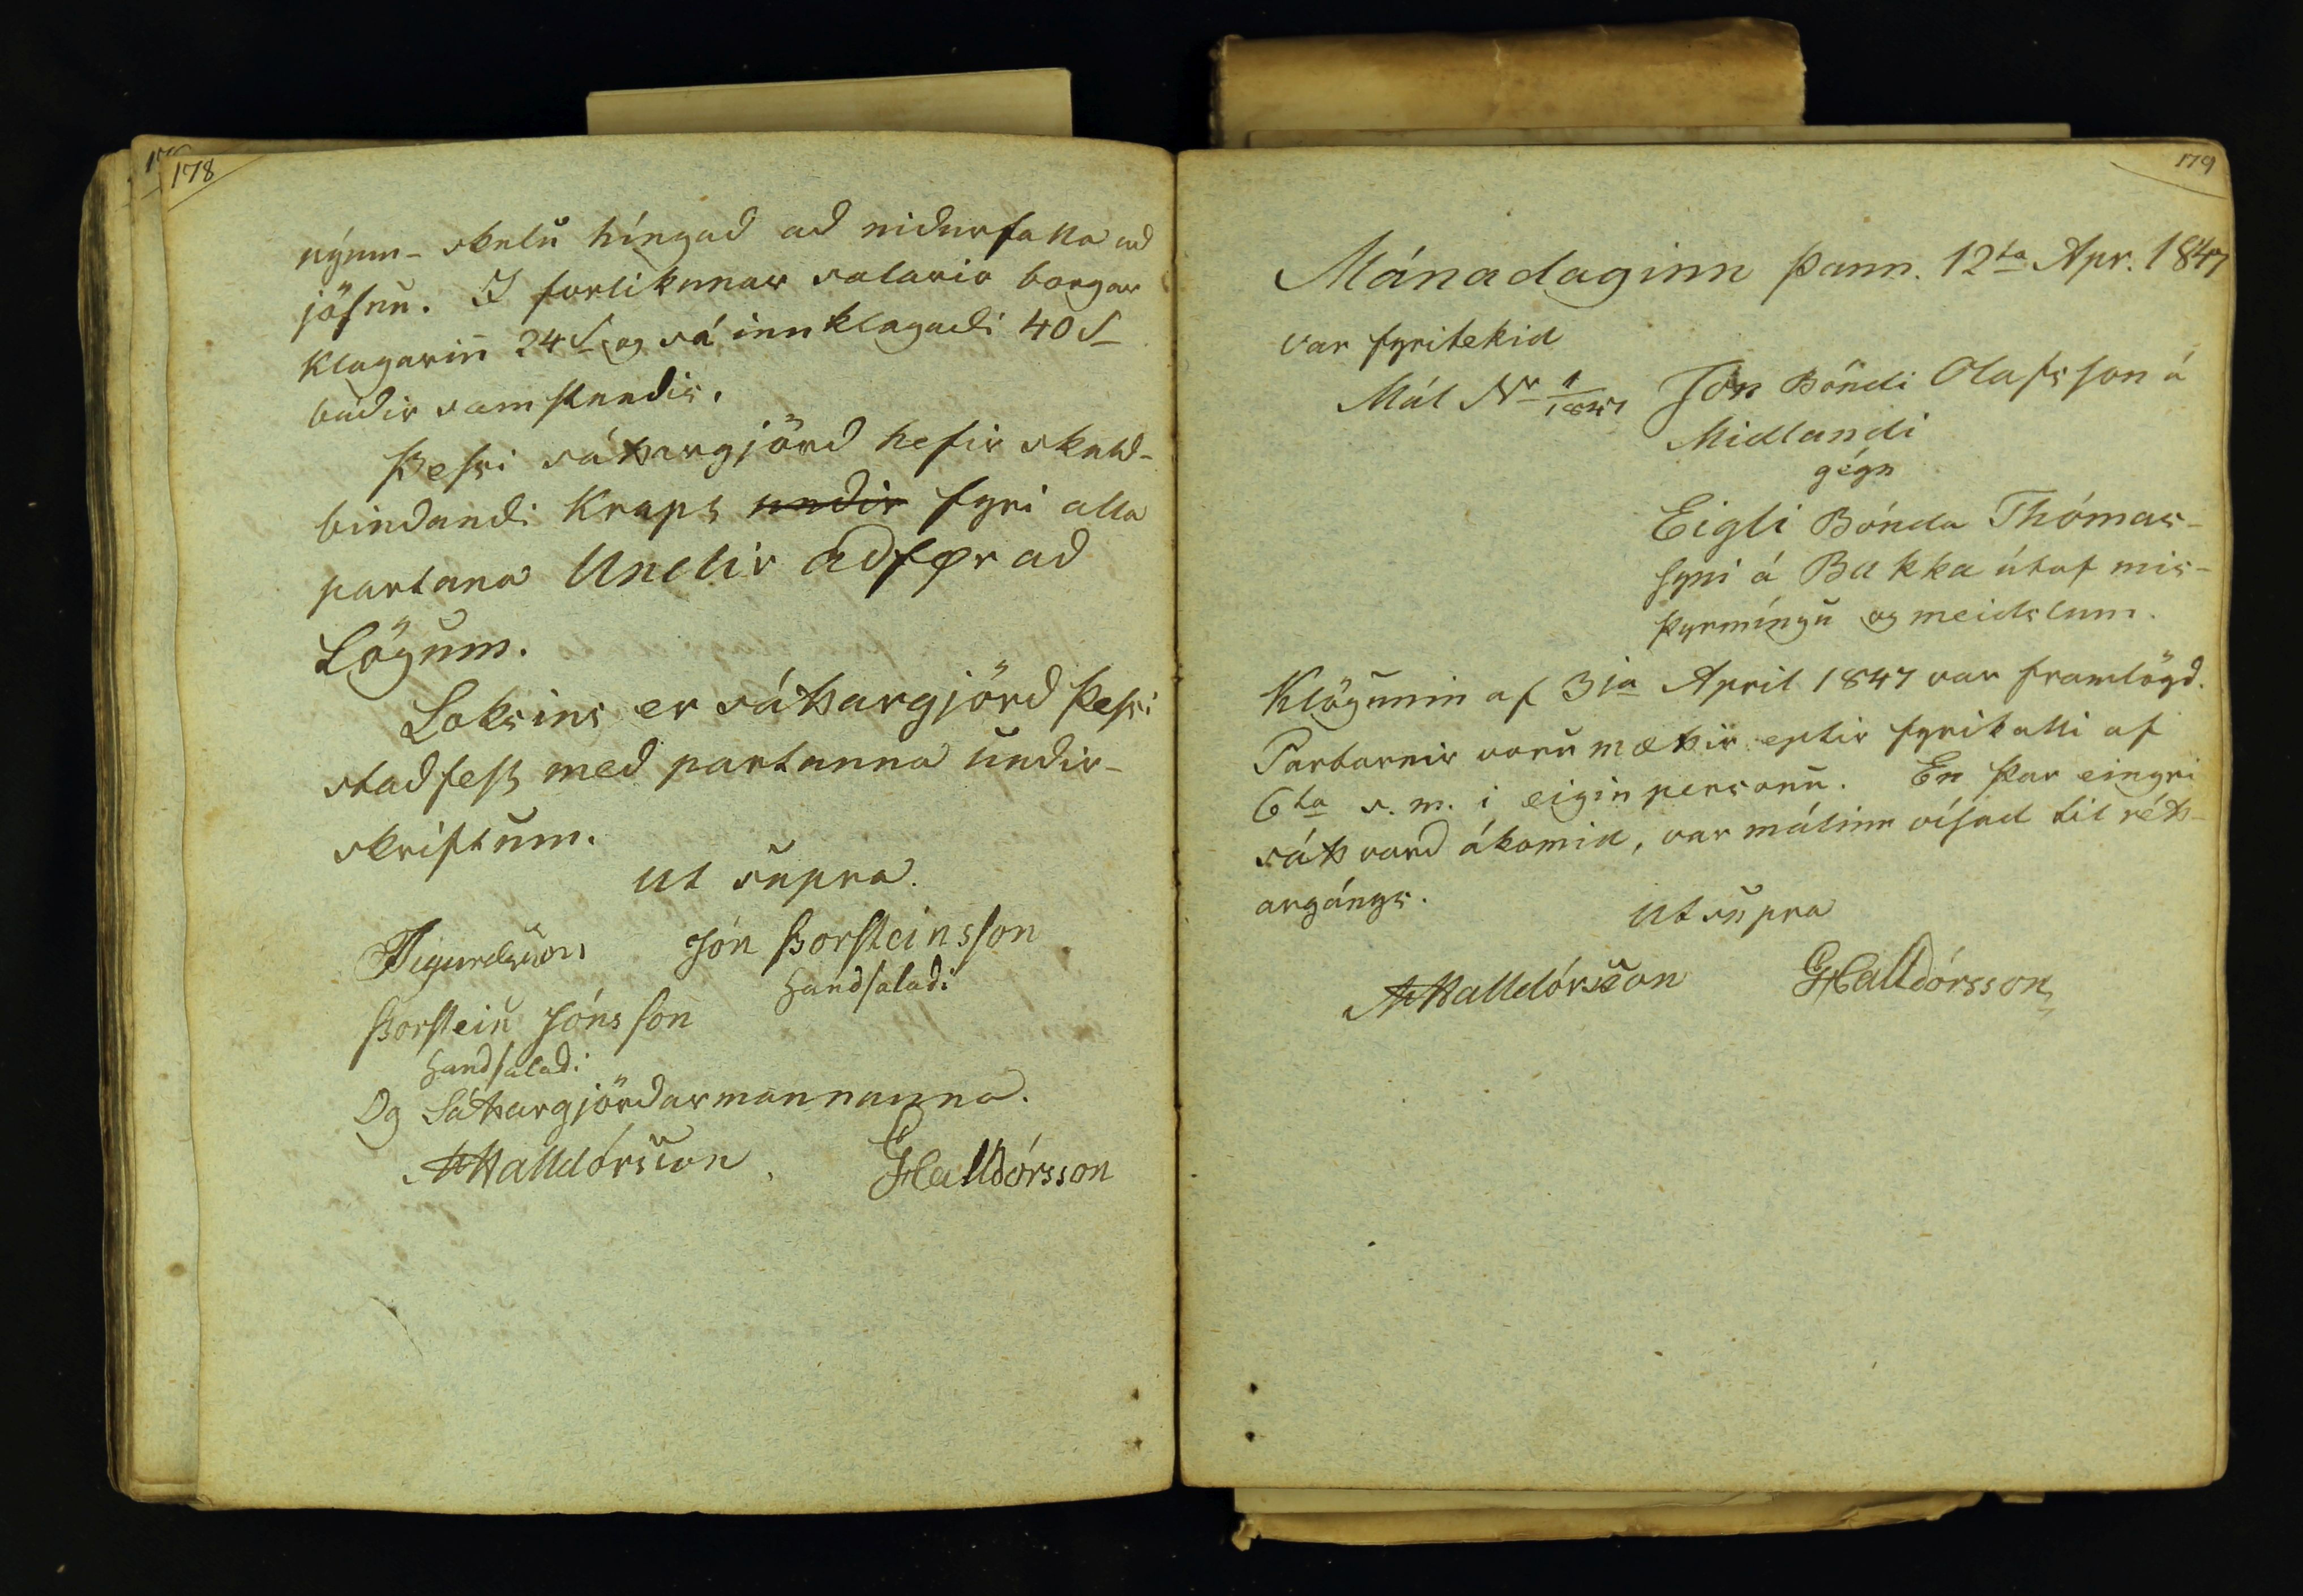 178
nýum- skulu híngad ad nidurfalla ad
jöfnu. I forlikunar salario borgar
Klagarin̄ 24 S og sá innklagadi 40 S
bádir samstundis.
Þessi sáttargjörd hefir skuld-
bindandi Krapt undir fyri alla
partana Undir adför ad
Lögum.
Loksins er sáttargjörd þessi
stadfest med partanna undir-
skriftum.
ut supra.
Sigurdsson Jón Þorsteinsson
handsaladi
Þorstein Jónsson
handsaladi
Og Sáttargjördarmannanna.
Halldórsson. GHalldórsson
179
Mánadaginn þann. 12ta Apr. 1847
var fyritekid
Mál Nr 1/1847 Jón Bóndi Olafsson á
Midlandi
gégn
Eigli Bónda Thómas-
syni á Bakka útaf mis-
þyrmíngu og meidslum.
Klögunin af 3ja April 1847 var framlögd.
Partarnir voru mættir eptir fyrikalli af
6ta s. m. i eigin personu. En þar eingri
sátt vard ákomid, var málinu vísad til rétt-
argángs.
Ut supra
Halldórsson GHalldórsson